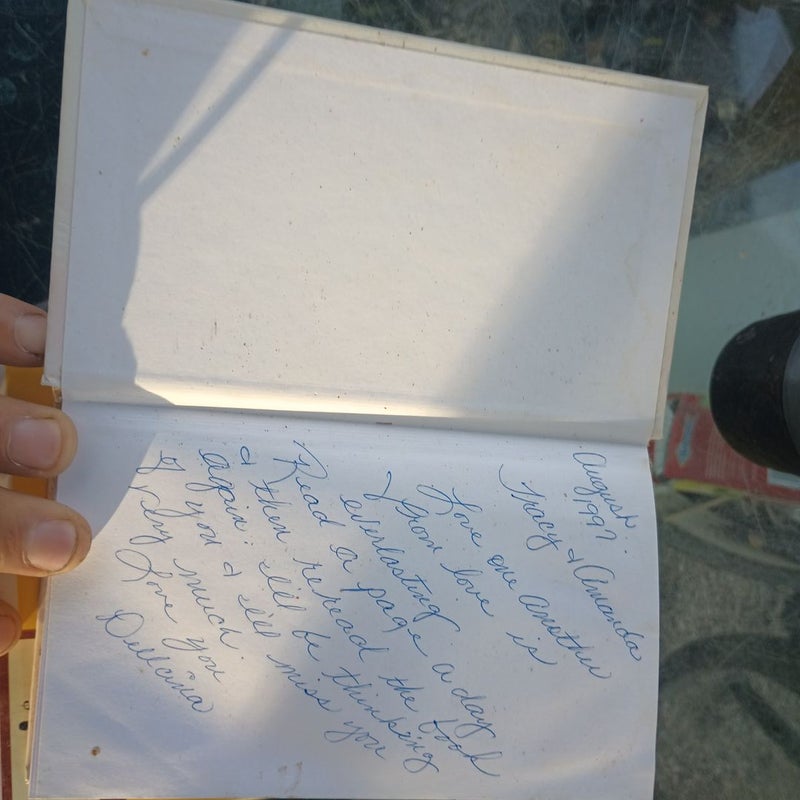 August.
1997
Tracy & Amanda
Love one another
Your love is
everlasting
Read a page a day
& then reread the book
again. I'll be thinking
of you & I'll miss you
very much.
Love you